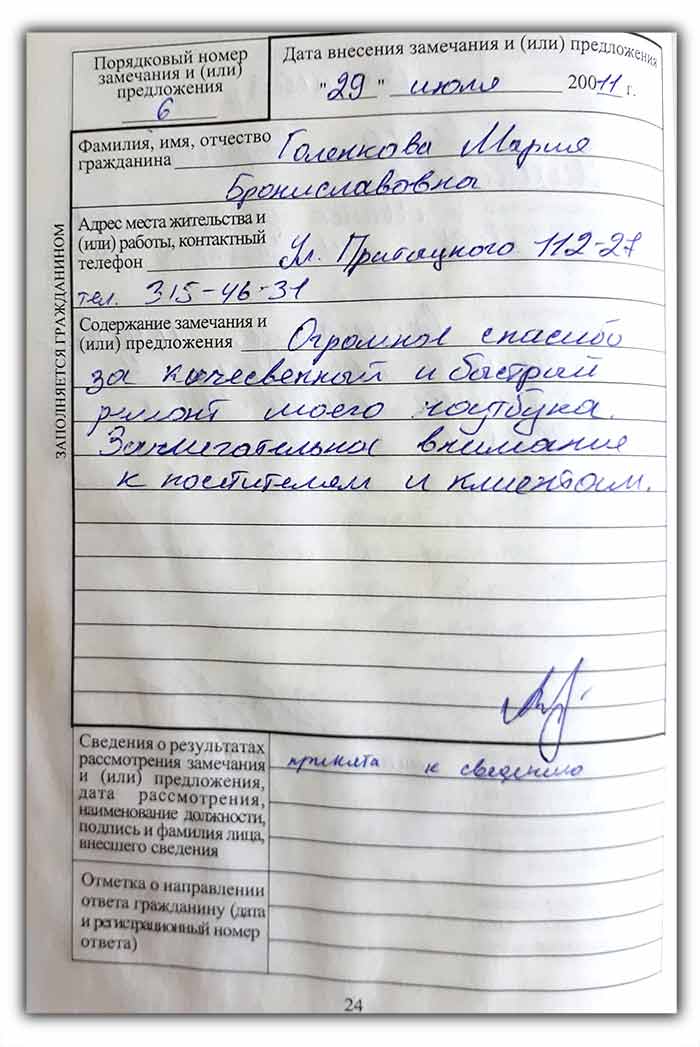 Порядковый номер
замечания и (или)
предложения
6
Дата внесения замечания и (или) предложения
"29" июля 20011 г.
ЗАПОЛНЯЕТСЯ ГРАЖДАНИНОМ
Фамилия, имя, отчество
гражданина Голенкова Мария
Брониславовна
Адрес места жительства и
(или) работы, контактный
телефон Ул. Притыцкого 112-27
тел. 315-46-31
Содержание замечания и
(или) предложения Огромное спасибо
за качесвенный и быстрый
ремонт моего ноутбука.
внимание
к посетителям и клиентам.
Сведения о результатах
рассмотрения замечания
и (или) предложения,
дата рассмотрения,
наименование должности,
подпись и фамилия лица,
внесшего сведения
принята к сведению
Отметка о направлении
ответа гражданину (дата
и регистрационный номер
ответа)
24